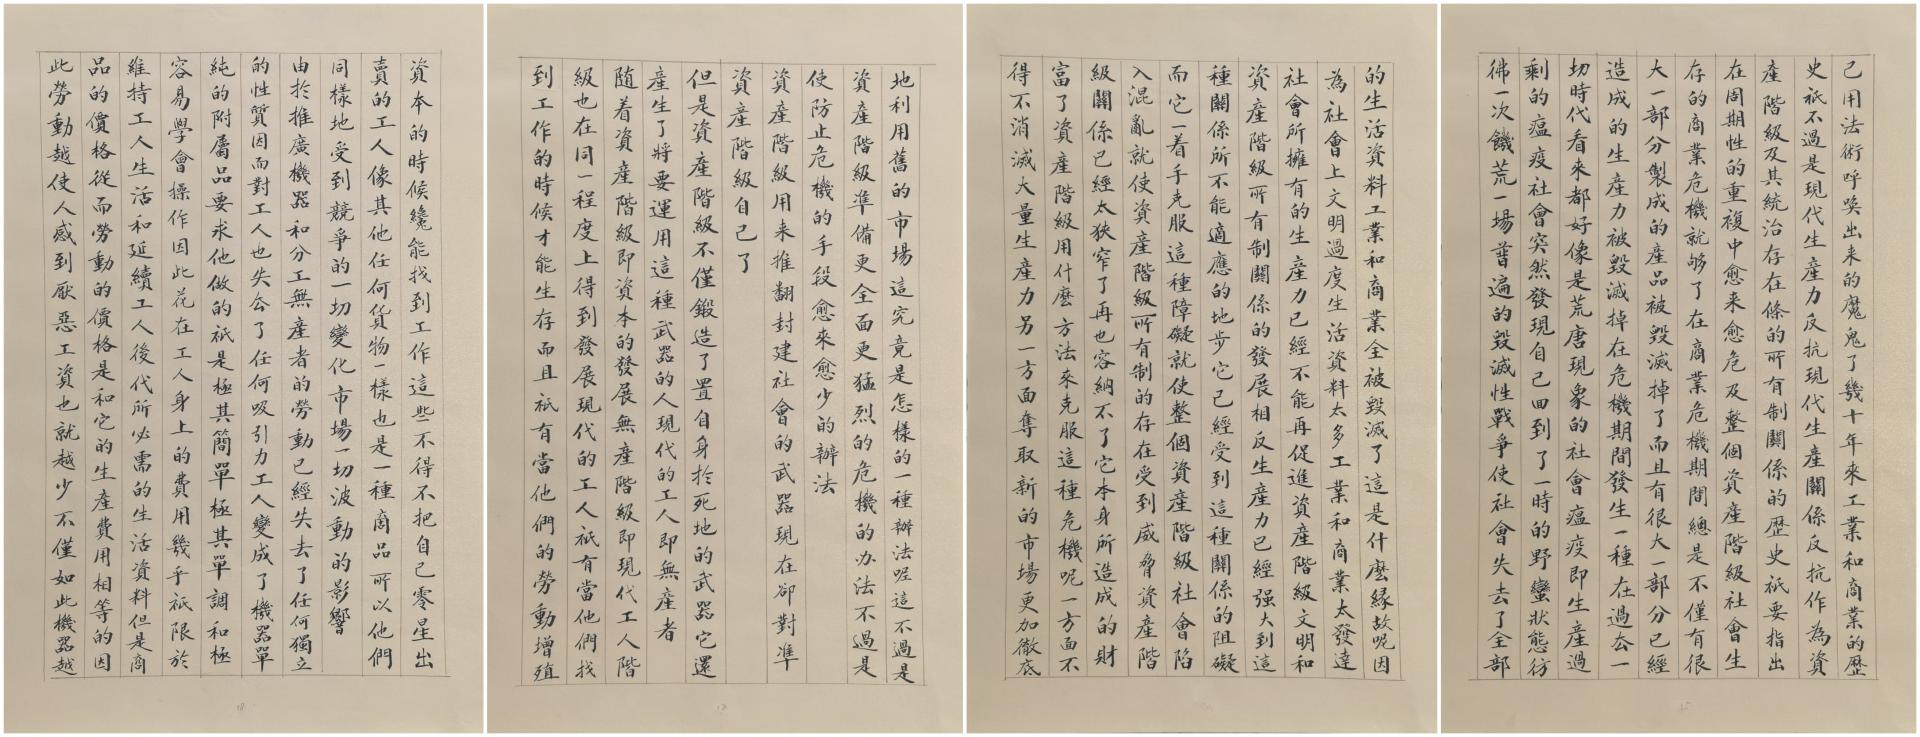 己用法術呼唤出来的魔鬼了幾十年來工業和商業的歷
史祇不過是現代生產力反抗現代生產關係反抗作為資
產階級及其統治存在條的所有制關係的歷史祇要指出
在周期性的重複中愈来愈危及整個資產階級社會生
存的商業危機就够了在商業危機期間總是不僅有很
大一部分製成的產品被毀滅掉了而且有很大一部分已經
造成的生產力被毀滅掉在危機期間發生一種在過去一
切時代看來都好像是荒唐現象的社會瘟疫即生產過
剩的瘟疫社會突然發現自己回到了一時的野蠻狀態彷
彿一次饑荒一場普遍的毀滅性戰爭使社會失去了全部
的生活資料工業和商業全被毀滅了這是什麼緣故呢因
為社會上文明過度生活資料太多工業和商業太發達
社會所擁有的生產力已經不能再促進資產階級文明和
資產階級所有制關係的發展相反生產力已經强大到這
種關係所不能適應的地步它已經受到這種關係的阻礙
而它一着手克服這種障礙就使整個資產階級社會陷
入混亂就使資產階級所有制的存在受到威脅資產階
級關係已經太狹窄了再也容納不了它本身所造成的財
富了資產階級用什麼方法來克服這種危機呢一方面不
得不消滅大量生產力另一方面奪取新的市場更加徹底
地利用舊的市場這究竟是怎樣的一種辦法呢這不過是
資產階級準備更全面更猛烈的危機的办法不過是
使防止危機的手段愈來愈少的辦法
資產階級用来推翻封建社會的武器現在卻對準
資產階級自己了
但是資產階級不僅鍛造了置自身於死地的武器它還
產生了將要運用這種武器的人現代的工人即無產者
随着資產階級即資本的發展無產階級即現代工人階
級也在同一程度上得到發展現代的工人祇有當他們找
到工作的時候才能生存而且祇有當他們的勞動增殖
資本的時候纔能找到工作這些不得不把自己零星出
賣的工人像其他任何貨物一樣也是一種商品所以他們
同樣地受到競爭的一切變化市場一切波動的影響
由於推廣機器和分工無產者的勞動已經失去了任何獨立
的性質因而對工人也失去了任何吸引力工人變成了機器單
純的附屬品要求他做的祇是極其簡單極其單調和極
容易學會操作因此花在工人身上的費用幾乎祇限於
維持工人生活和延續工人後代所必需的生活資料但是商
品的價格從而勞動的價格是和它的生產費用相等的因
此勞動越使人感到厭惡工資也就越少不僅如此機器越